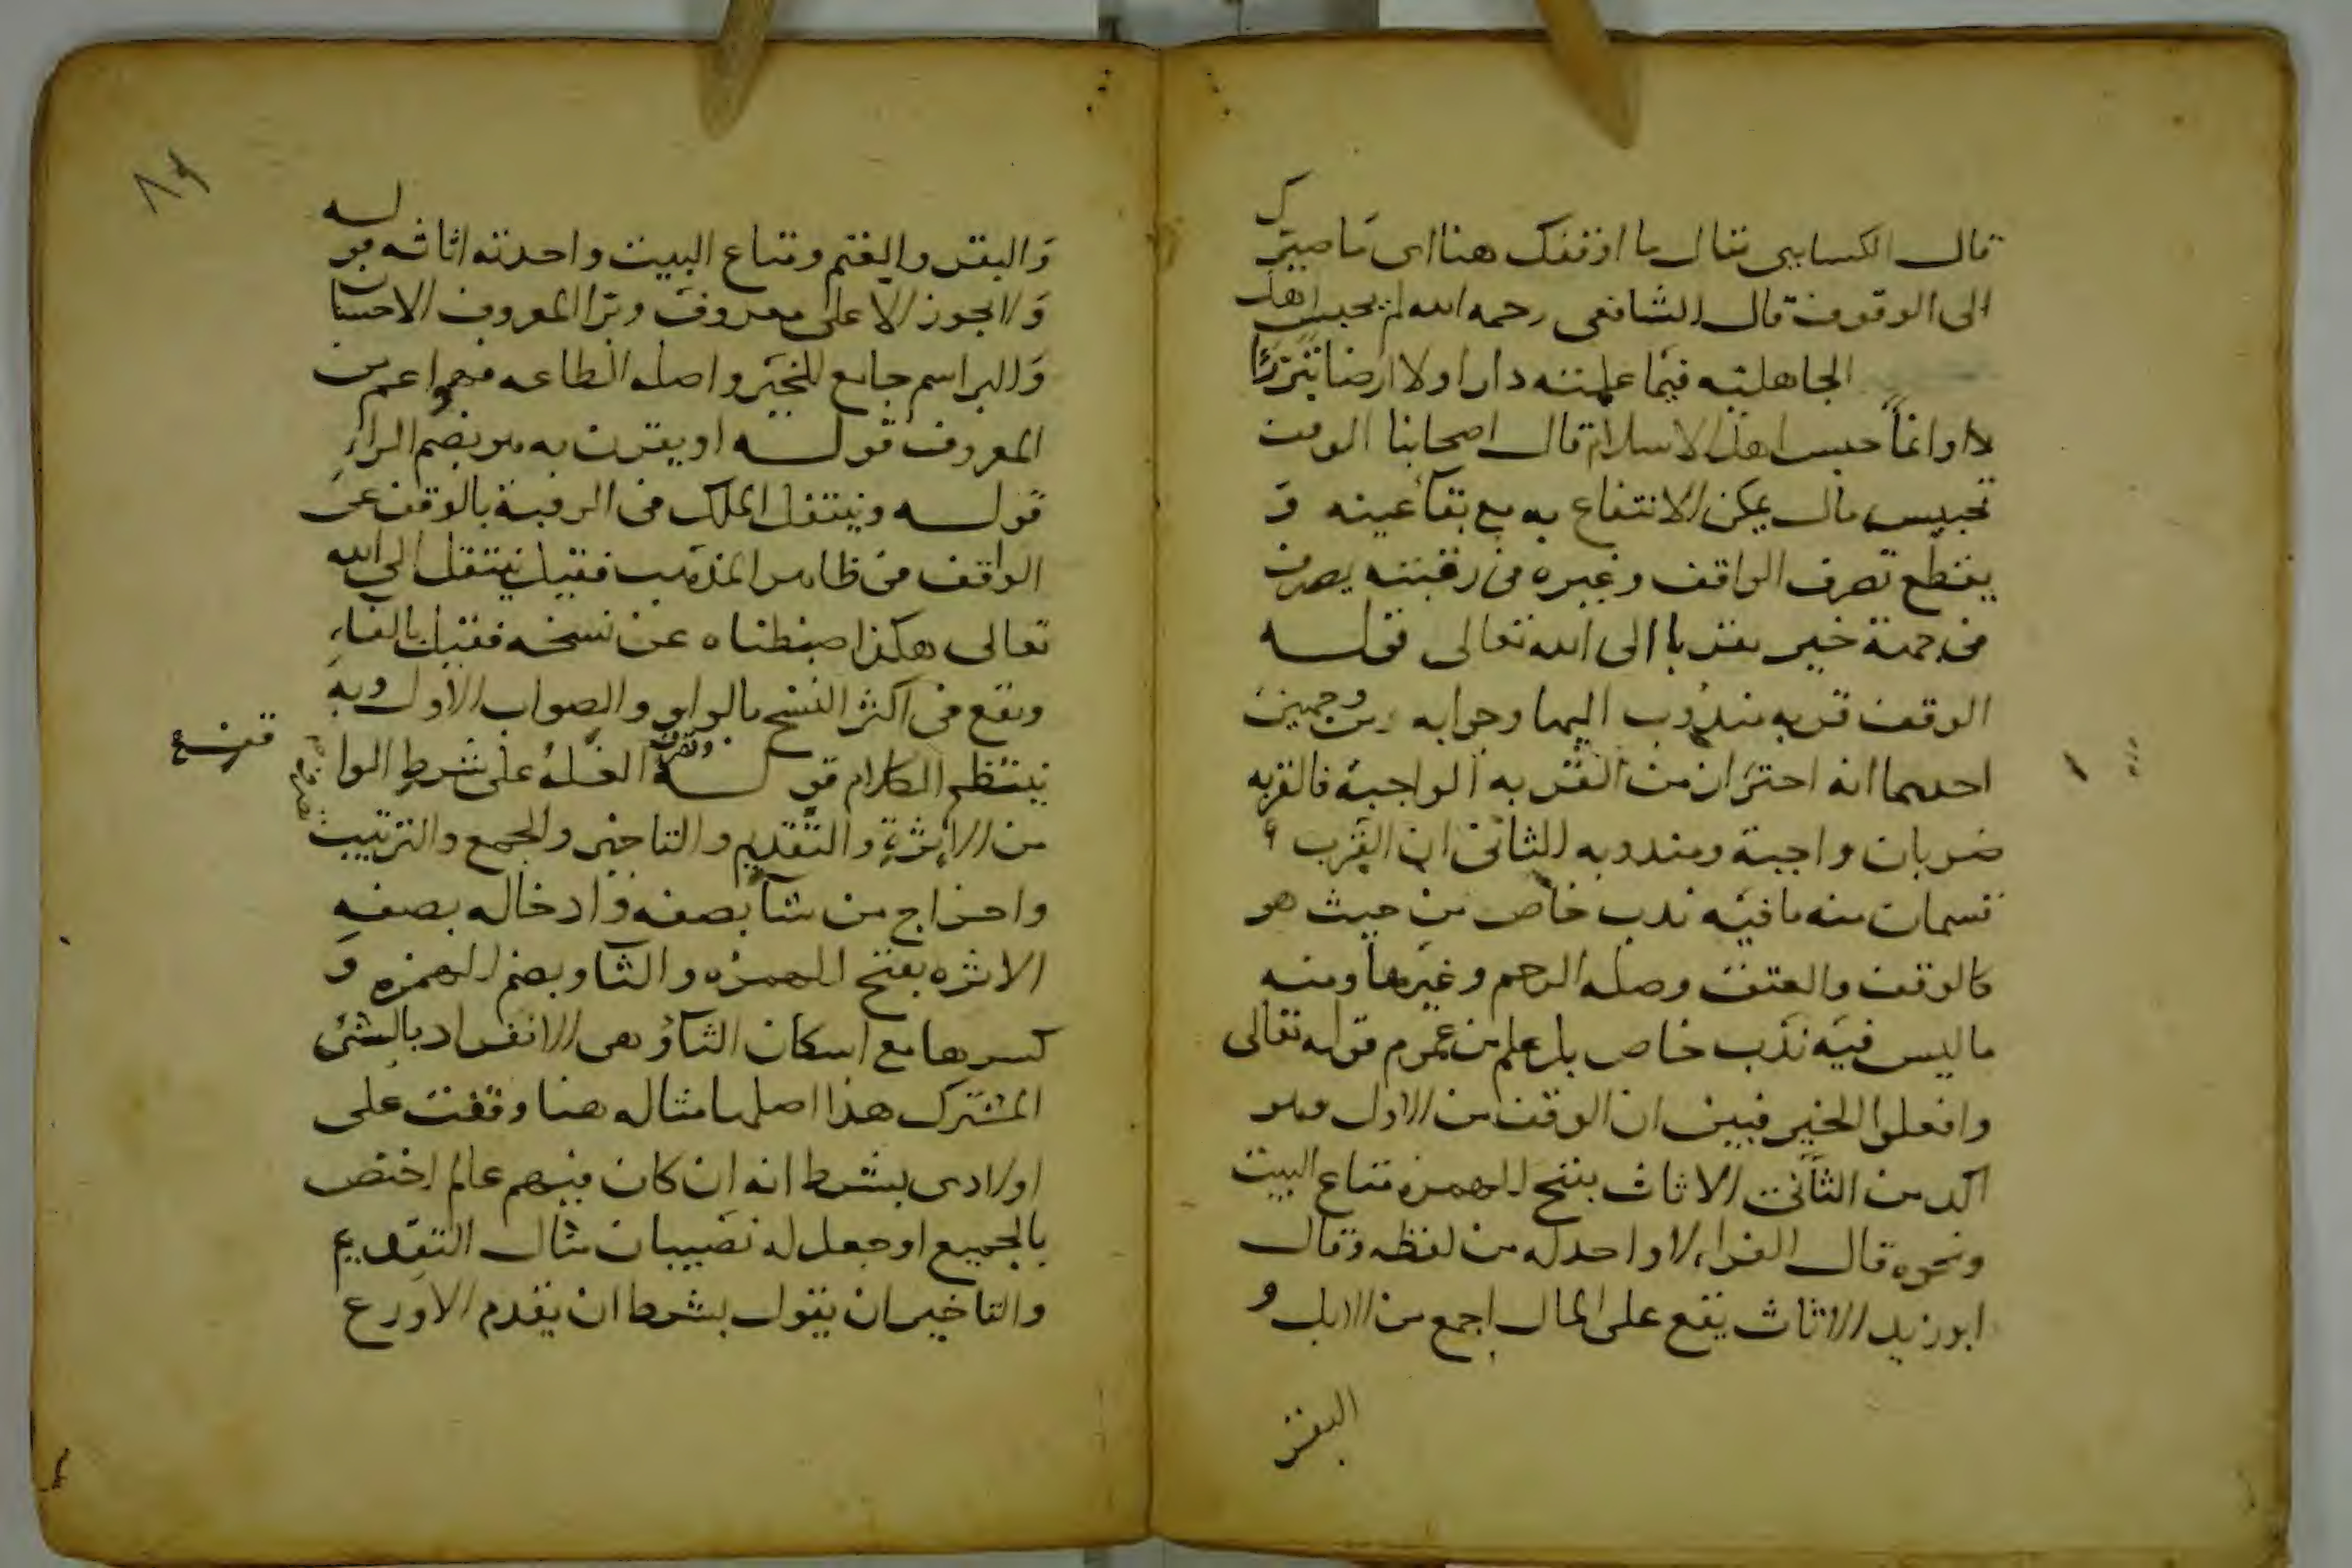 قال الكسايى يقال ما اوقفك هنا اى ما صيرك
الى الوقوف قال الشافعى رحمه الله لم يحبس اهل
الجاهلية فيما علمته دارا ولا ارضا تبررا
لا وانما حبس اهل الاسلام قال اصحابنا الوقف
تحبيس مال يمكن الانتفاع به مع بقا عينه و
يقطع تصرف الواقف وغيره فى رقبته يصرف
فى جهة خير تقربا الى الله تعالى قوله
الوقف قربه مندوب اليها وجوابه من وجهين
احدهما انه احتراز من القربه الواجبة فالقربه
ضربان واجبة ومندوبه الثانى ان القرب
قسمان منه ما فيه ندب خاص من حيث هو
كالوقف والعتق وصلة الرحم وغيرها ومنه
ما ليس فيه ندب خاص بل علم من عموم قوله تعالى
وافعلوا الخير فبين ان الوقف من الاول وهو
آكد من الثانى الاثاث بفتح الهمزه متاع البيت
ونحوه قال الفراء لا واحد له من لفظه وقال
ابو زيد الاثاث يقع على المال اجمع من الابل و
البقر
٨٩
والبقر والغنم ومتاع البيت واحدته اثاثه قوله
ولا يجوز الا على معروف وبر المعروف الاحسان
والبر اسم جامع للخير واصله الطاعه فهو اعم من
المعروف قوله او يقترن به هو بضم الراء
قوله وينتقل الملك فى الرقبة بالوقف عن
الواقف فى ظاهر المذهب فقيل ينتقل الى الله
تعالى هكذا ضبطناه عن نسخه فقيل بالفاء
ويقع فى اكثر النسخ بالواو والصواب الاول وبه
ينتظم الكلام قوله وتصرف الغلة على شرط الوا
من الاثرة والتقديم والتاخير والجمع والترتيب
واخراج من شا بصفه وادخاله بصفه
الاثره بفتح الهمزه والثا وبضم الهمزه و
كسرها مع اسكان الثا وهى الانفراد بالشئ
المشترك هذا اصلها مثاله هنا وقفت على
اولادى بشرط انه ان كان فيهم عالم اختص
بالجميع او جعل له نصيبان مثال التقديم
والتاخير ان يقول بشرط ان يقدم الاورع